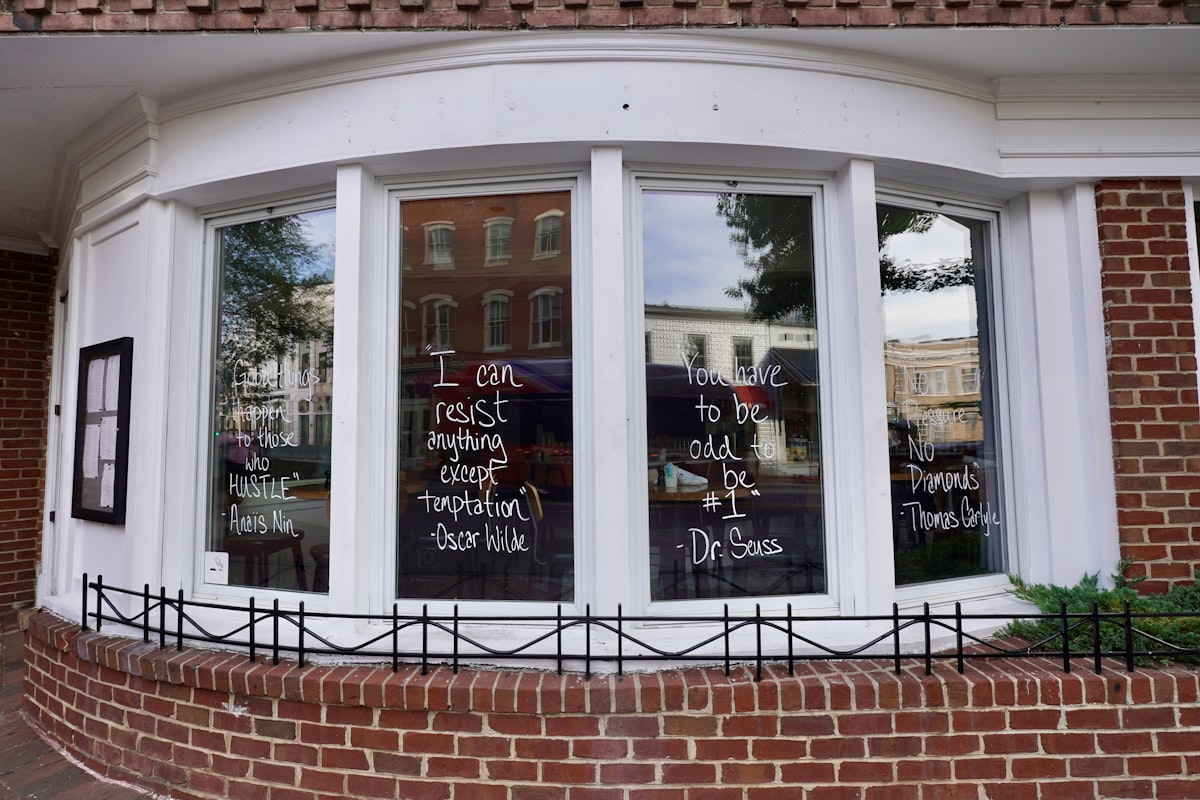 Good things
happen
to those
who
HUSTLE"
-Anaïs Nin
"I can
resist
anything
except
temptation"
-Oscar Wilde
You have
to be
odd to
be
#1"
-Dr. Seuss
"No
Pressure
No
Diamonds"
Thomas Carlyle